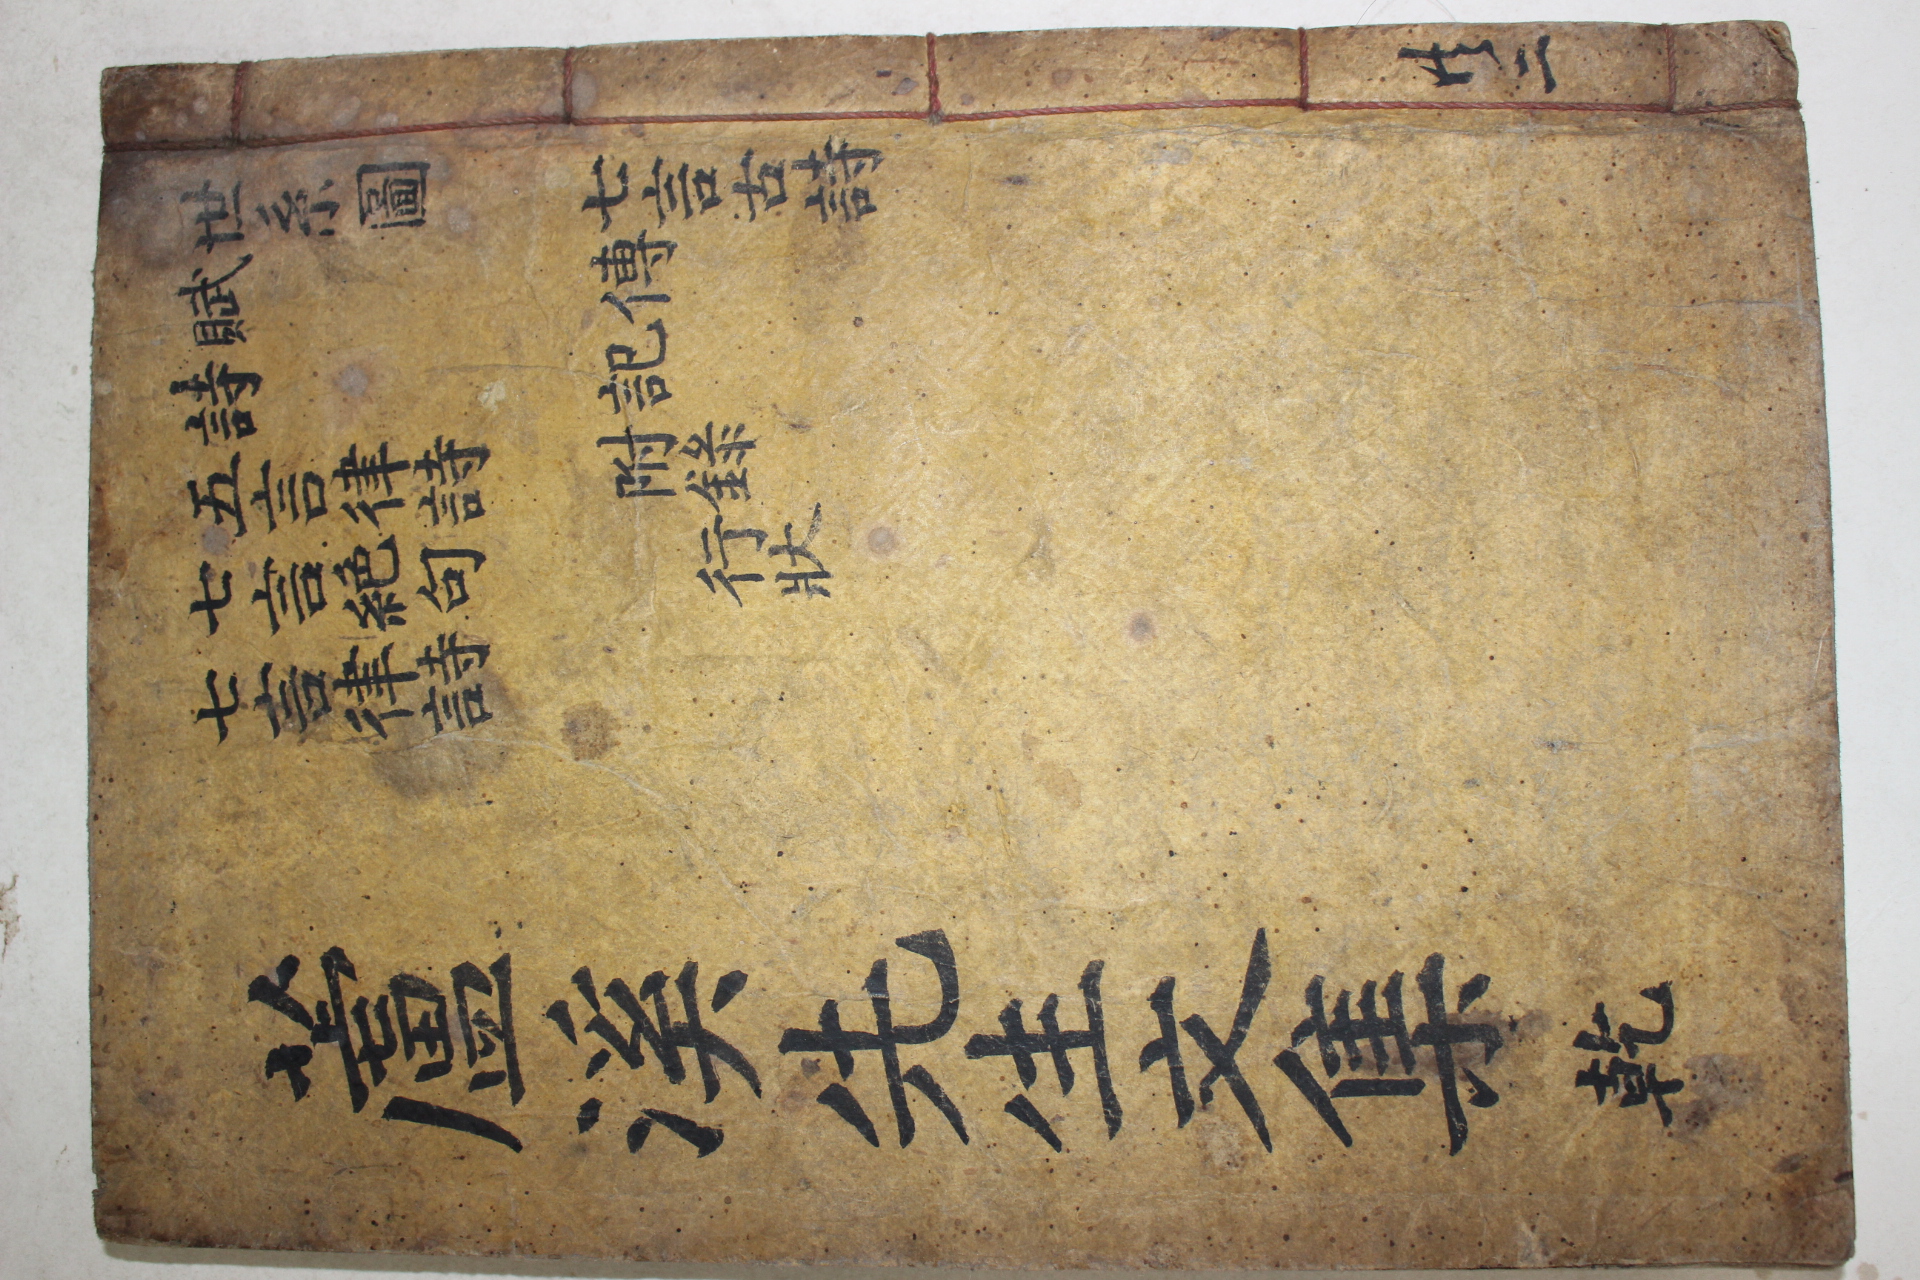 共二
世系圖
賦
詩
五言律詩
七言絶句
七言律詩
七言古詩
傳
記
附錄
行狀
蘆溪先生文集 乾